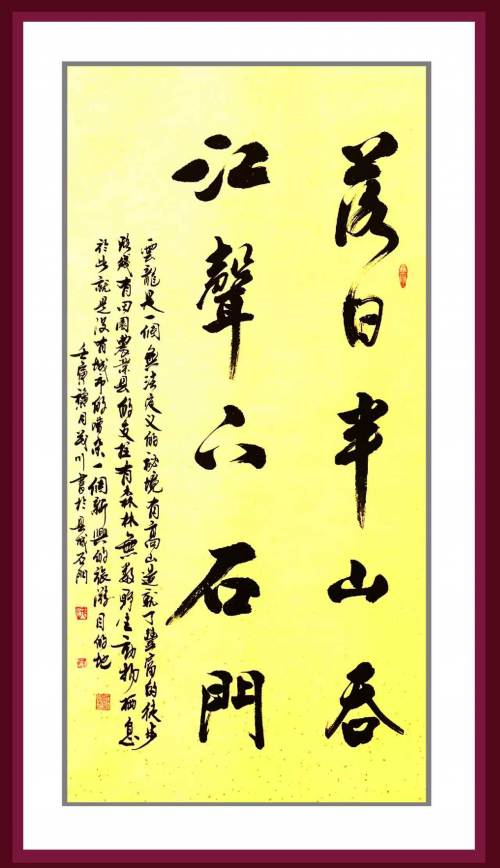 落日半山吞
江聲下石門
雲龍是一個無法定义的秘境有高山造就了豐富的徒步
路线有田園農業县的支柱有森林無数野生動物栖息
於此就是没有城市的喧杂一個新興的旅游目的地
壬寅月義川書於县城石門